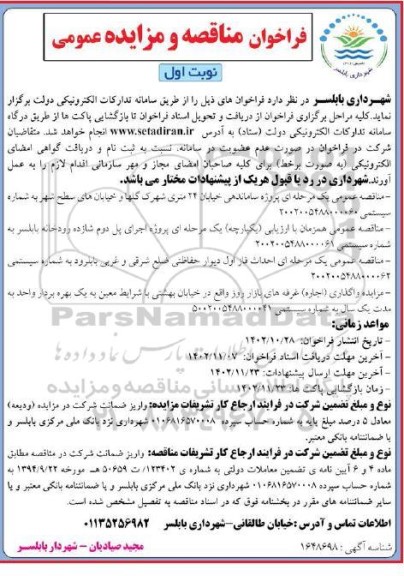 فراخوان مناقصه و مزایده عمومی
شهرداری بابلسر
نوبت اول
شهرداری بابلسر در نظر دارد فراخوان های ذیل را از طریق سامانه تدارکات الکترونیکی دولت برگزار
نماید. کلیه مراحل برگزاری فراخوان از دریافت و تحویل اسناد فراخوان تا بازگشایی پاکت ها از طریق درگاه
سامانه تدارکات الکترونیکی دولت (ستاد) به آدرس www.setadiran.ir انجام خواهد شد. متقاضیان
شرکت در فراخوان در صورت عدم عضویت در سامانه، نسبت به ثبت نام و دریافت گواهی امضای
الکترونیکی (به صورت برخط) برای کلیه صاحبان امضای مجاز و مهر سازمانی اقدام لازم را به عمل
آورند. شهرداری در رد یا قبول هریک از پیشنهادات مختار می باشد.
- مناقصه عمومی یک مرحله ای پروژه ساماندهی خیابان ۲۴ متری شهرک گلها و خیابان های سطح شهر به شماره
سیستمی ۲۰۰۲۰۰۵۴۸۸۰۰۰۰۶۰
- مناقصه عمومی همزمان با ارزیابی (یکپارچه) یک مرحله ای پروژه اجرای پل دوم شازده رودخانه بابلسر به
شماره سیستمی ۲۰۰۲۰۰۵۴۸۸۰۰۰۰۶۱
- مناقصه عمومی یک مرحله ای احداث فاز اول دیوار حفاظتی ضلع شرقی و غربی بابلرود به شماره سیستمی
۲۰۰۲۰۰۵۴۸۸۰۰۰۰۶۲
- مزایده واگذاری (اجاره) غرفه های بازار روز واقع در خیابان بهشتی با شرایط معین به یک بهره بردار واجد به
مدت یک سال به شماره سیستمی ۵۰۰۲۰۰۵۴۸۸۰۰۰۰۴۱
مواعد زمانی:
- تاریخ انتشار فراخوان: ۱۴۰۲/۱۰/۲۸
- آخرین مهلت دریافت اسناد فراخوان: ۱۴۰۲/۱۱/۰۷
- آخرین مهلت ارسال پیشنهادات: ۱۴۰۲/۱۱/۲۳
- زمان بازگشایی پاکت ها: ۱۴۰۲/۱۱/۲۳
نوع و مبلغ تضمین شرکت در فرایند ارجاع کار تشریفات مزایده: واریز ضمانت شرکت در مزایده (ودیعه)
معادل ۵ درصد مبلغ پایه به شماره حساب سپرده ۰۱۰۶۸۱۶۵۷۰۰۰۸ شهرداری نزد بانک ملی مرکزی بابلسر و
یا ضمانتنامه بانکی معتبر.
نوع و مبلغ تضمین شرکت در فرایند ارجاع کار تشریفات مناقصه: واریز ضمانت شرکت در مناقصه مطابق
ماده ۴ و ۶ آیین نامه ی تضمین معاملات دولتی به شماره ی ۱۲۳۴۰۲/ت ۵۰۶۵۹ هـ مورخه ۱۳۹۴/۹/۲۲ به
شماره حساب سپرده ۰۱۰۶۸۱۶۵۷۰۰۰۸ شهرداری نزد بانک ملی مرکزی بابلسر و یا ضمانتنامه بانکی معتبر و یا
سایر ضمانتنامه های مقرر در بخشنامه فوق که در اسناد مناقصه به تفصیل مشخص شده است.
اطلاعات تماس و آدرس: خیابان طالقانی-شهرداری بابلسر ۰۱۱۳۵۲۵۶۹۸۲
شناسه آگهی: ۱۶۴۸۶۹۸
مجید صیادیان - شهردار بابلسر
ParsNamadData